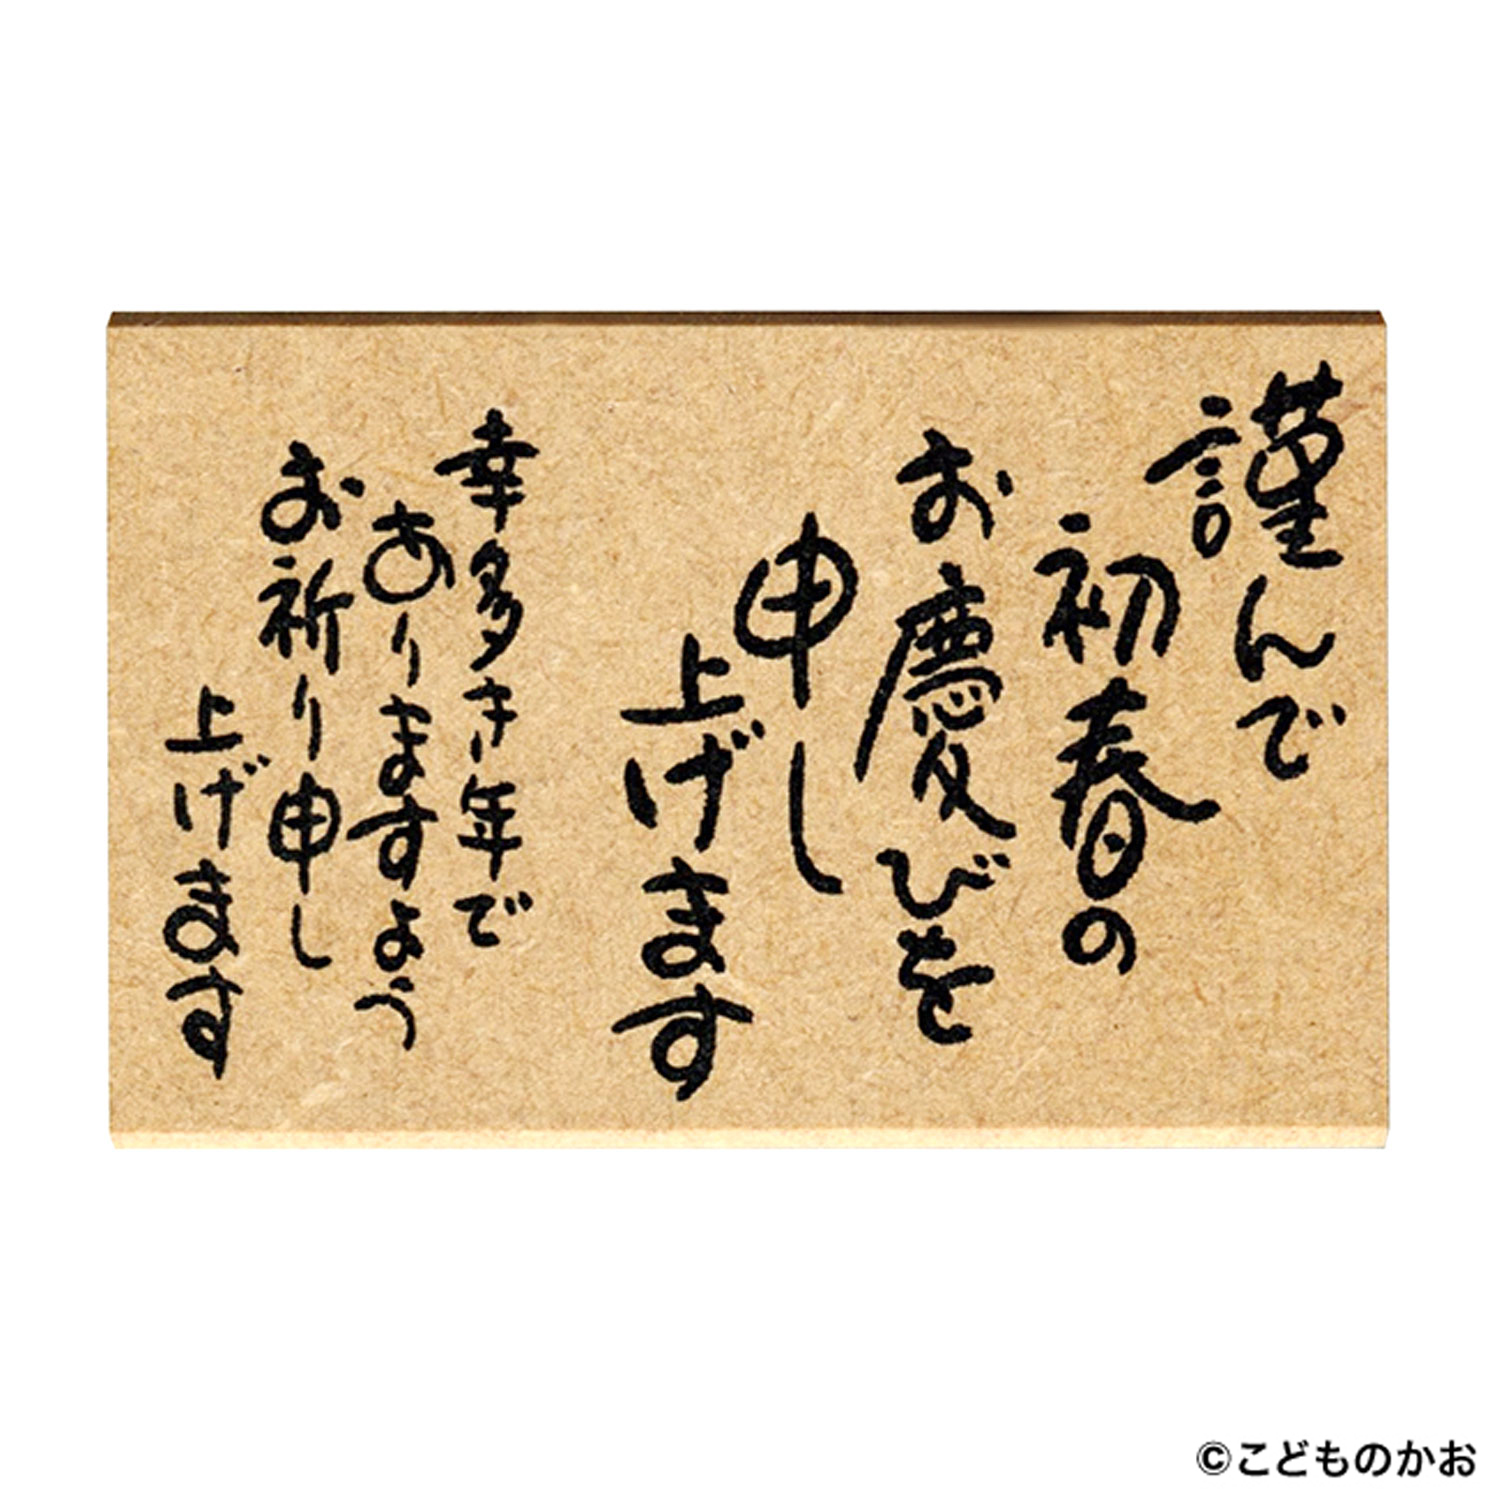 謹んで
初春の
お慶びを
申し
上げます
幸多き年で
ありますよう
お祈り申し
上げます
©こどものかお